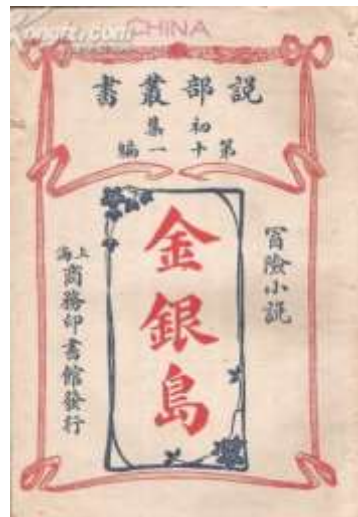 CHINA
說部叢書
初集
第十一編
冒險小說
金銀島
上海商務印書館發行